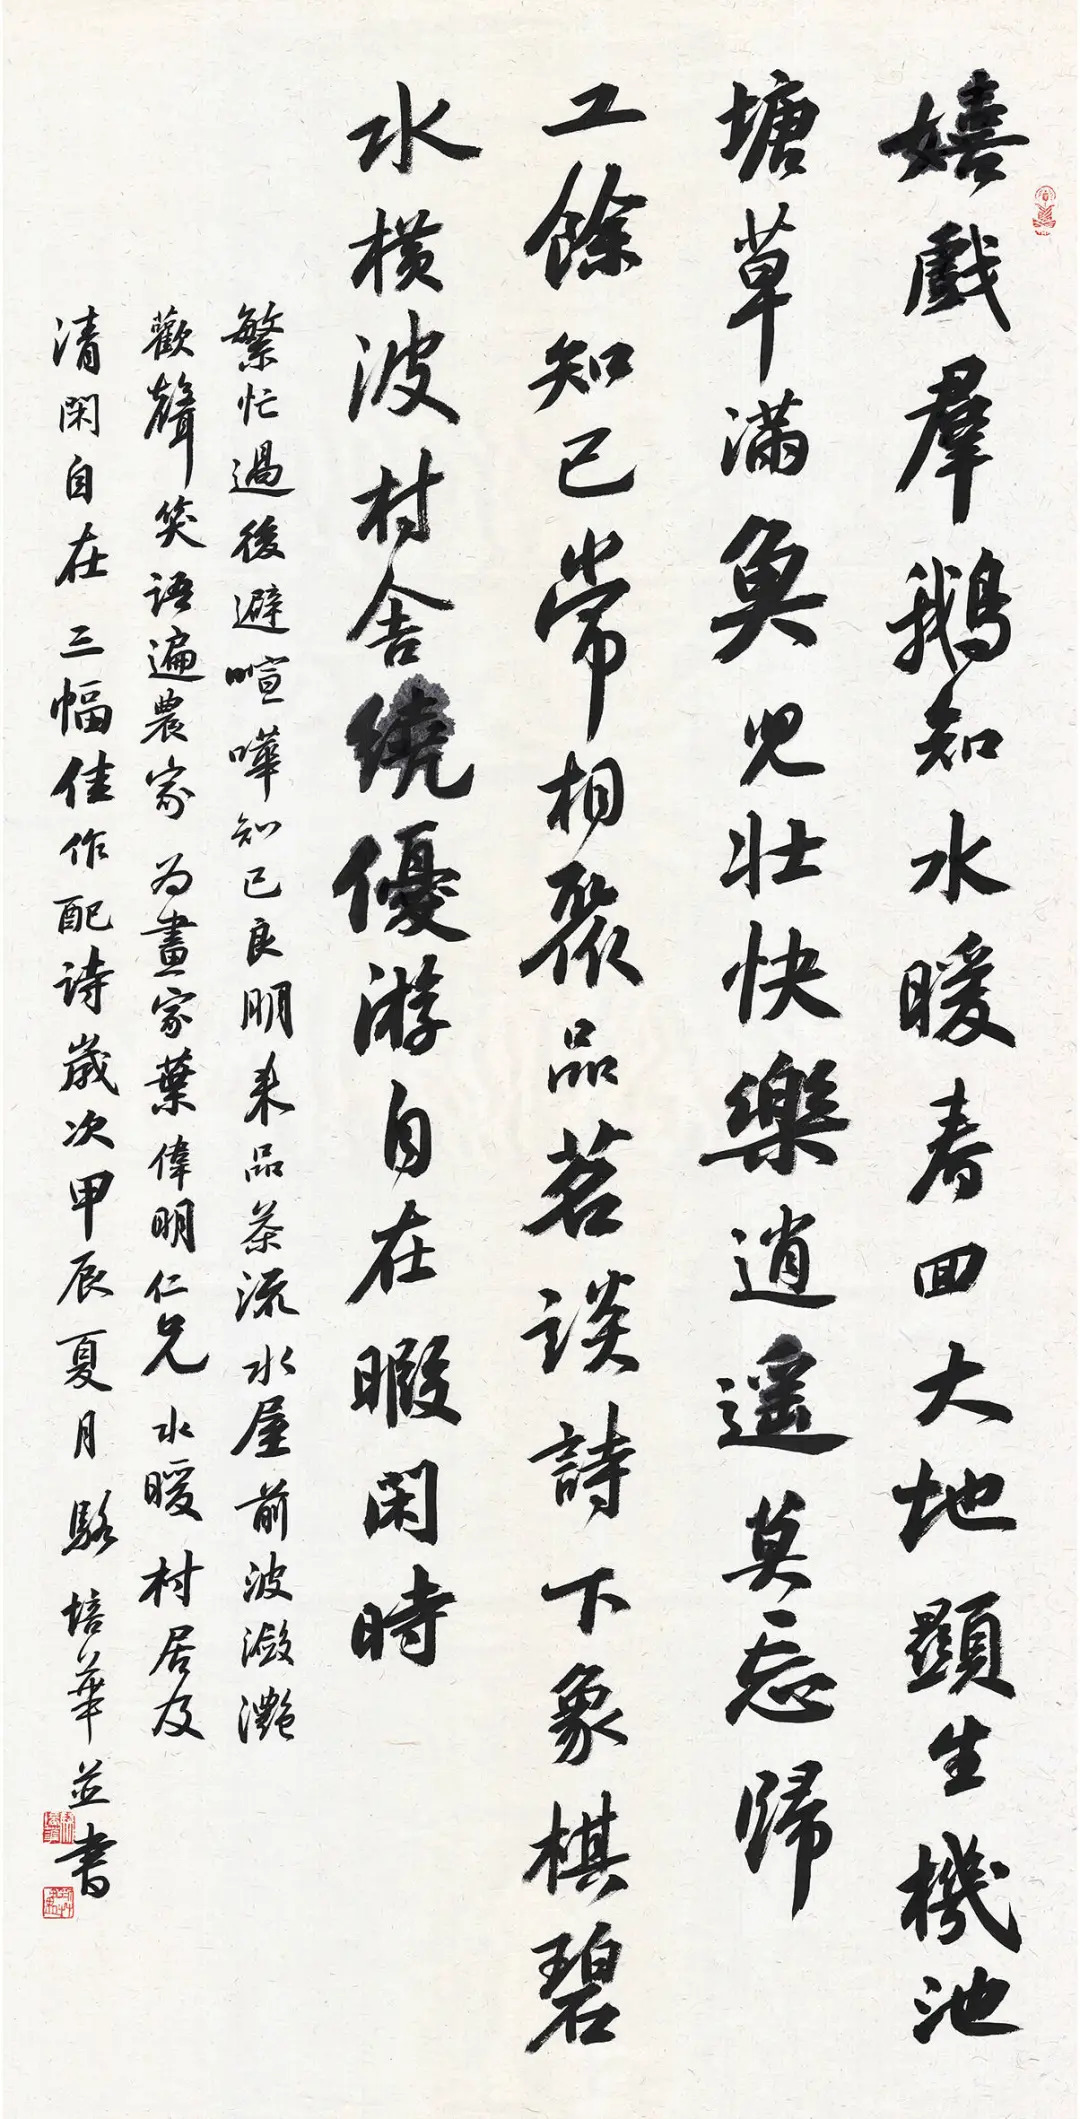 嬉戲羣鵝知水暖春回大地顯生機池
塘草滿魚兒壯快樂逍遥莫忘歸
工餘知己常相聚品茗談詩下象棋碧
水橫波村舍繞優游自在暇閑時
繁忙過後避喧嘩知己良朋来品茶流水屋前波瀲灩
歡聲笑語遍農家為畫家葉偉明仁兄水暖村居及
清閑自在三幅佳作配詩歲次甲辰夏月駱培華並書